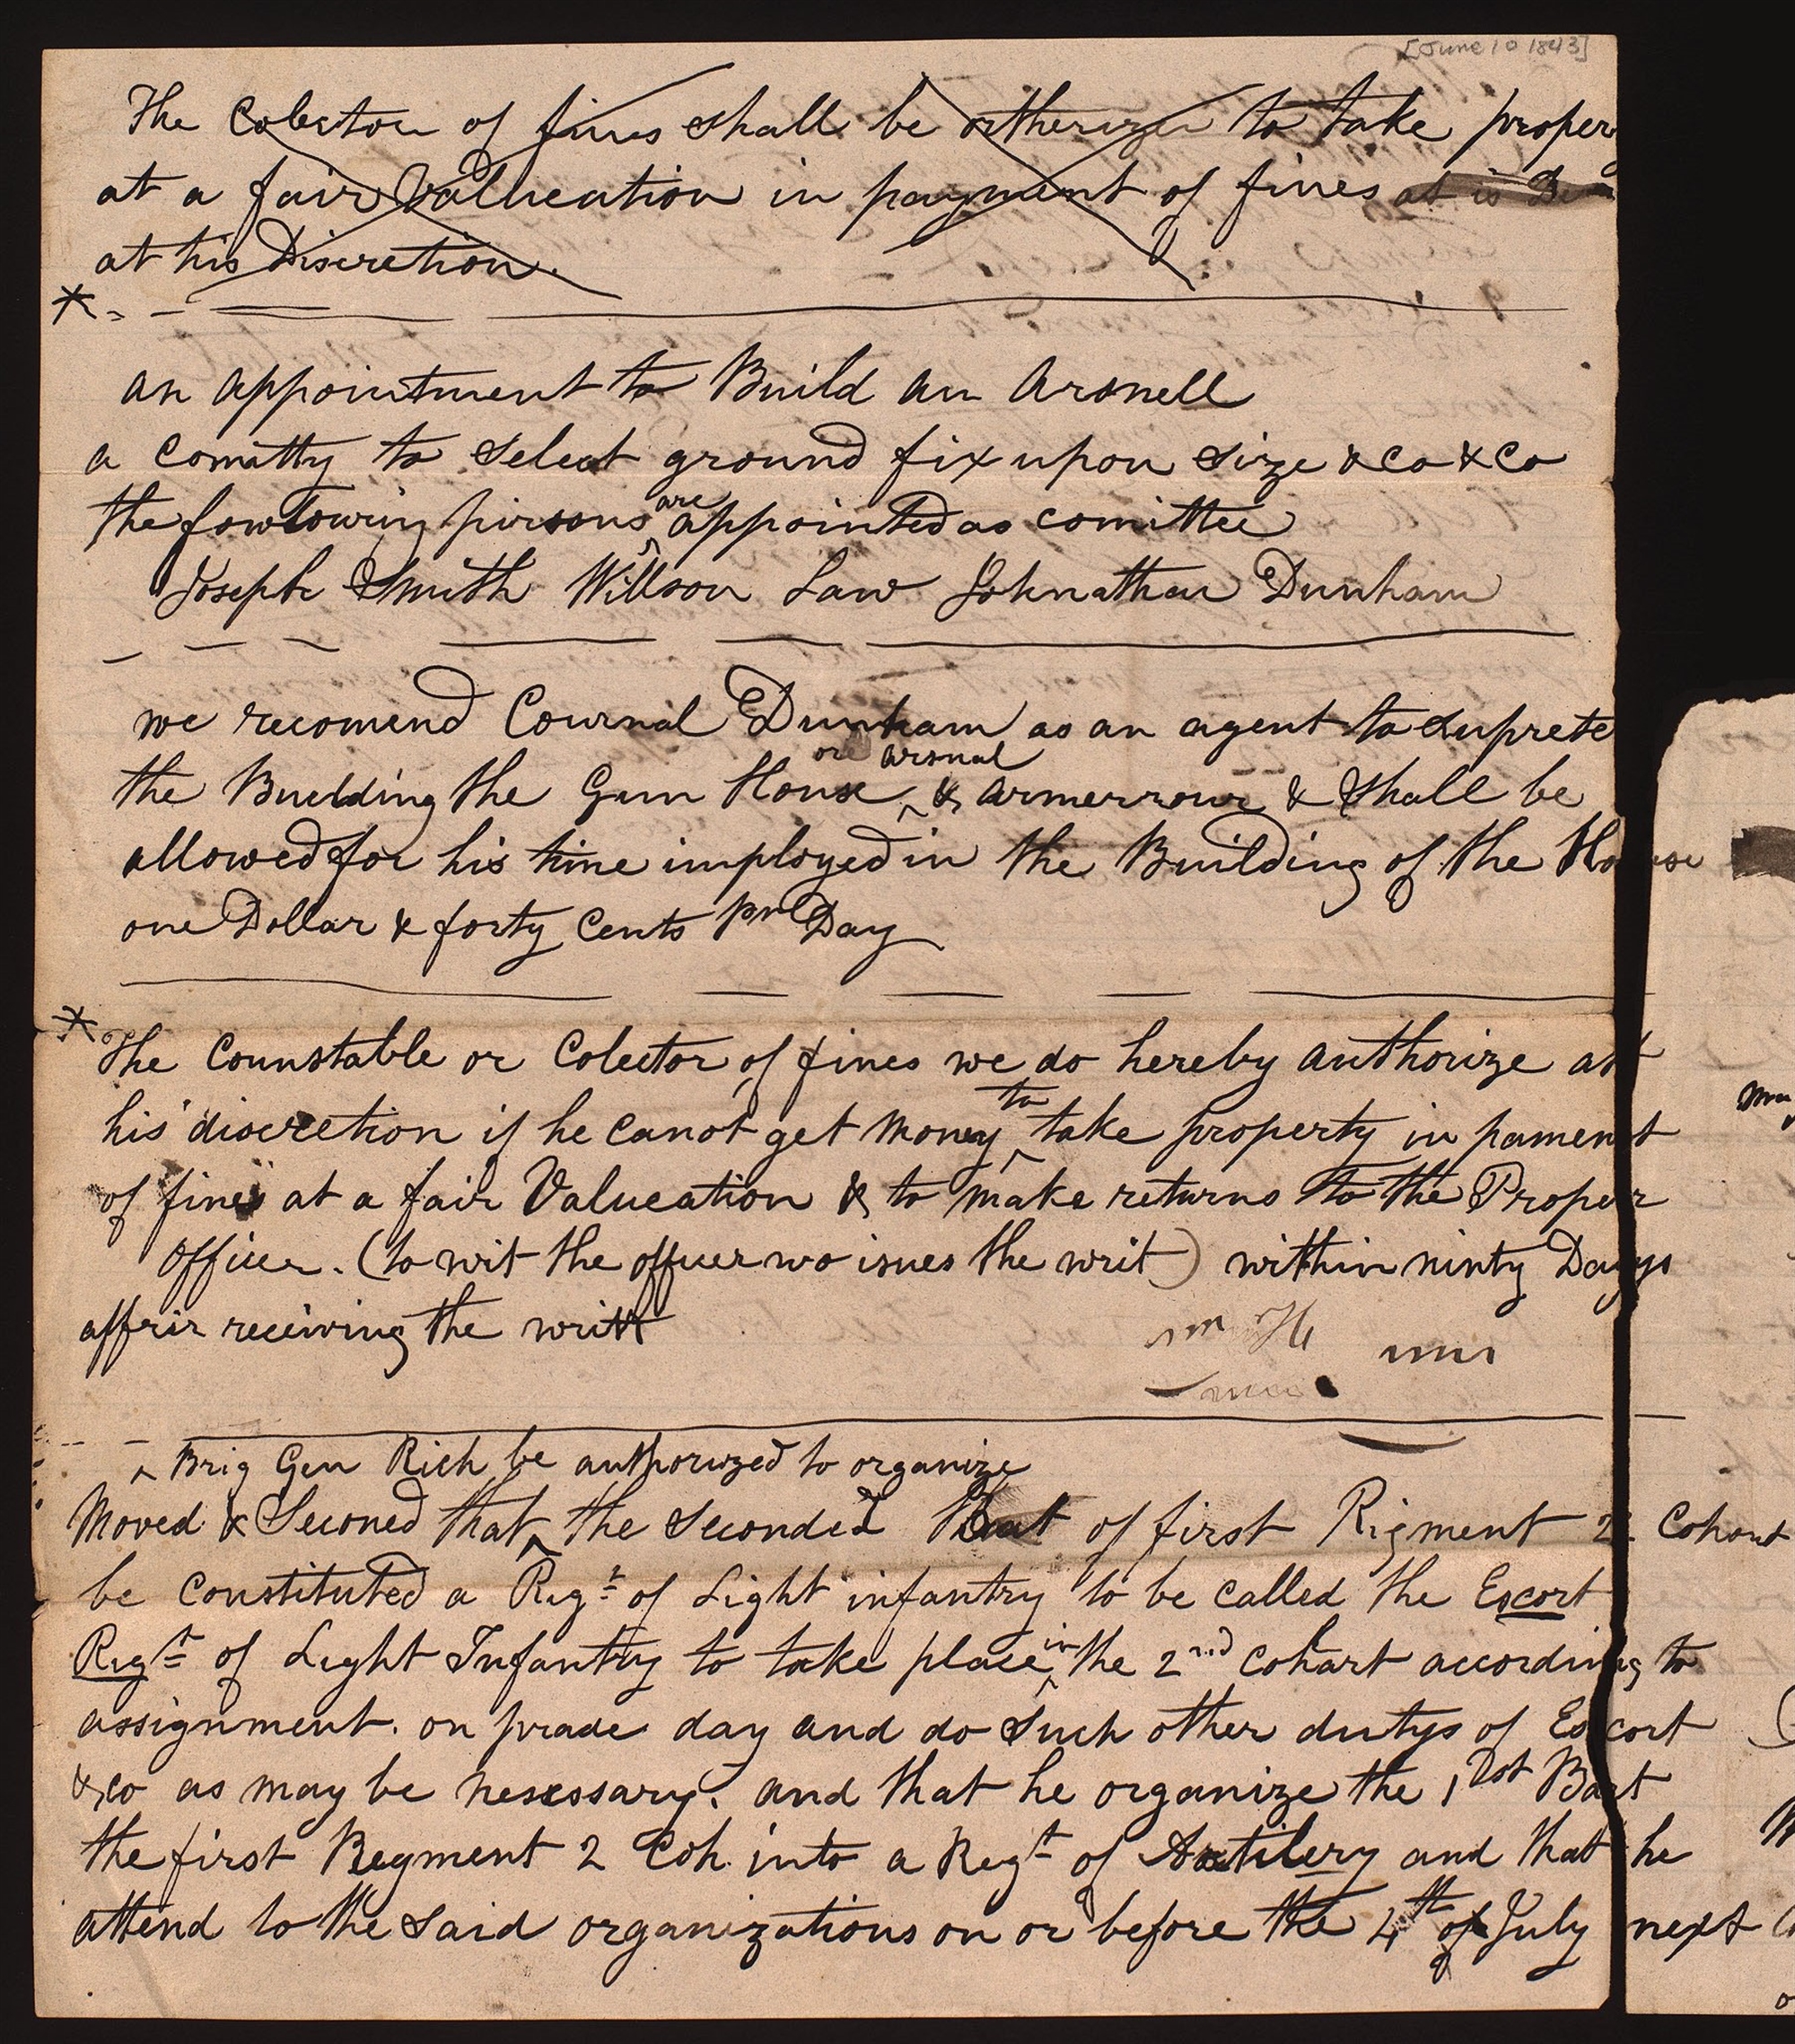 [June 10 1843]
The Colector of fines shall be otherizer to take proper
at a fair Vallucation in payment of fines at is
at his Discretion.
an appointment to Build an Arsnell
a Comitty to Select ground fix upon size & Co & Co
are
the fowlowing pirsons ^ appointed as comittee
Joseph Smith Willson Law Johnathan Dunham
we recomend Cournal Dunham as an agent to Suprete
ore arsnal
the Building the Gun House ^ & Armerroure & Shall be
allowed for his time imployed in the Building of the House
one Dollar & forty Cents Pr Day
* The Counstable or Colector of fines we do hereby authorize at
to
his discretion if he canot get money ^ take property in pament
of fines at a fair Valucation & to make returns to the Proper
officer. (to wit the officer wo isues the writ) within ninty Days
affrir receiving the writt
^ Brig Gen Rich be authorized to organize
Moved & Seconed that ^ the Seconded Bat of first Rigment 2 Cohort
be Constituted a Regt of Light infantry to be called the Escort
in
Regt of Light Infantry to take place ^ the 2nd Cohart according to
assignment. on prade day and do Such other dutys of Escort
&,co as may be nesessary. and that he organize the 1st Batt
the first Regment 2 Coh. into a Regt of Artilery and that he
attend to the Said organizations on or before the 4th of July next